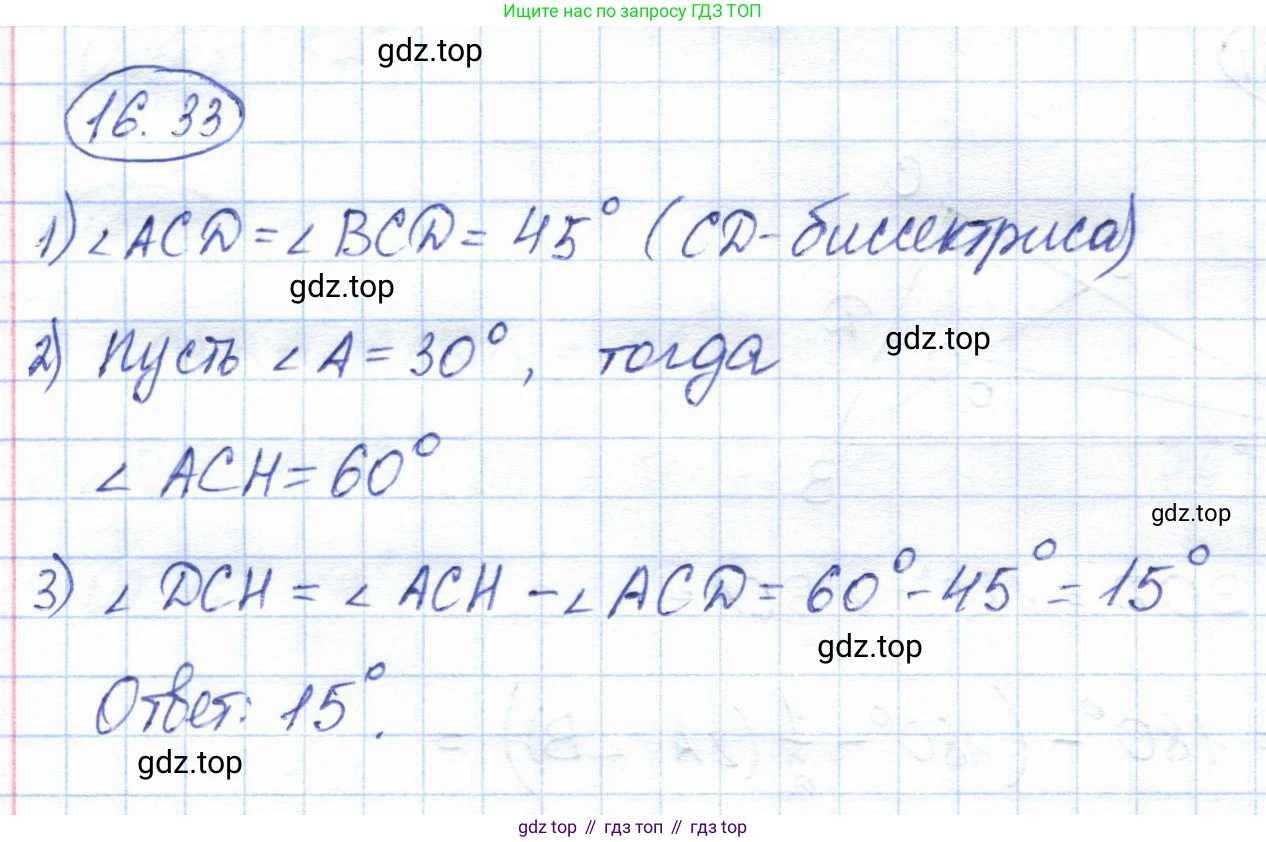 Ищите нас по запросу ГДЗ ТОП
gdz.top
16.33
1) ∠ACD = ∠BCD = 45° (CD - биссектриса)
gdz.top
2) Пусть ∠A = 30°, тогда
gdz.top
∠ACH = 60°
gdz.top
3) ∠DCH = ∠ACH - ∠ACD = 60° - 45° = 15°
gdz.top
Ответ: 15°.
gdz.top
gdz top // гдз топ // gdz top